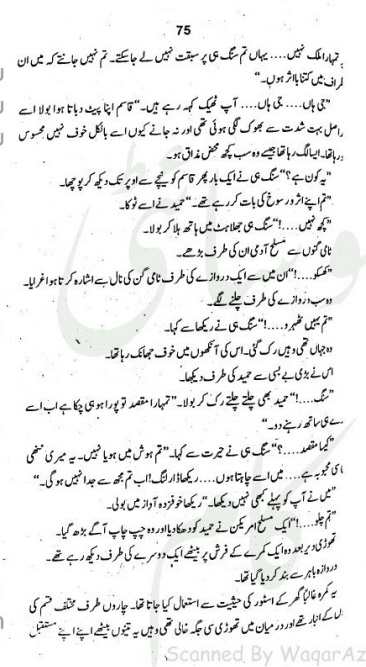 75
تمہارا ملک نہیں.... یہاں تم سنگ ہی پر سبقت نہیں لے جاسکتے۔ تم نہیں جانتے کہ میں ان
طراف میں کتنا بااثر ہوں۔"
"جی ہاں.... جی ہاں.... آپ ٹھیک کہہ رہے ہیں۔" قاسم اپنا پیٹ دباتا ہوا بولا اسے
راصل بہت شدت سے بھوک لگی ہوئی تھی اور نہ جانے کیوں اسے بالکل خوف نہیں محسوس
رہا تھا۔ ایسا لگ رہا تھا جیسے وہ سب کچھ محض مذاق ہو۔
"یہ کون ہے؟" سنگ ہی نے ایک بار پھر قاسم کو نیچے سے اوپر تک دیکھ کر پوچھا۔
"تم اپنے اثر و رسوخ کی بات کر رہے تھے۔" حمید نے اسے ٹوکا۔
"کچھ نہیں....!" سنگ ہی جھلاہٹ میں ہاتھ ہلا کر بولا۔
نامی گنوں سے مسلح آدمی ان کی طرف بڑھے۔
"کھسکو....!" ان میں سے ایک دروازے کی طرف ٹامی گن کی نال سے اشارہ کرتا ہوا غرایا۔
وہ سب دروازے کی طرف چلنے لگے۔
"تم یہیں ٹھہرو....!" سنگ ہی نے ریکھا سے کہا۔
وہ جہاں تھی وہیں رک گئی۔ اس کی آنکھوں میں خوف جھانک رہا تھا۔
اس نے بڑی بے بسی سے حمید کی طرف دیکھا۔
"سنگ....!" حمید بھی چلتے چلتے رک کر بولا۔ "تمہارا مقصد تو پورا ہو ہی چکا ہے اب اسے
رے ہی ساتھ رہنے دو۔"
"کیا مقصد....؟" سنگ ہی نے حیرت سے کہا۔ "تم ہوش میں ہو یا نہیں۔ یہ میری ننھی
سی محبوبہ ہے.... میں اسے چاہتا ہوں.... ریکھا ڈارلنگ! اب تم مجھ سے جدا نہیں ہوگی۔"
"میں نے آپ کو پہلے کبھی نہیں دیکھا۔" ریکھا خوفزدہ آواز میں بولی۔
"تم چلو....!" ایک مسلح امریکن نے حمید کو دھکا دیا اور وہ چپ چاپ آگے بڑھ گیا۔
تھوڑی دیر بعد وہ ایک کمرے کے فرش پر بیٹھے ایک دوسرے کی طرف دیکھ رہے تھے۔
دروازہ باہر سے بند کر دیا گیا تھا۔
یہ کمرہ غالباً گھر کے اسٹور کی حیثیت سے استعمال کیا جاتا تھا۔ چاروں طرف مختلف قسم کی
کے انبار تھے اور درمیان میں تھوڑی سی جگہ خالی تھی وہیں یہ تینوں بیٹھے اپنے اپنے مستقبل
Scanned By WaqarAz